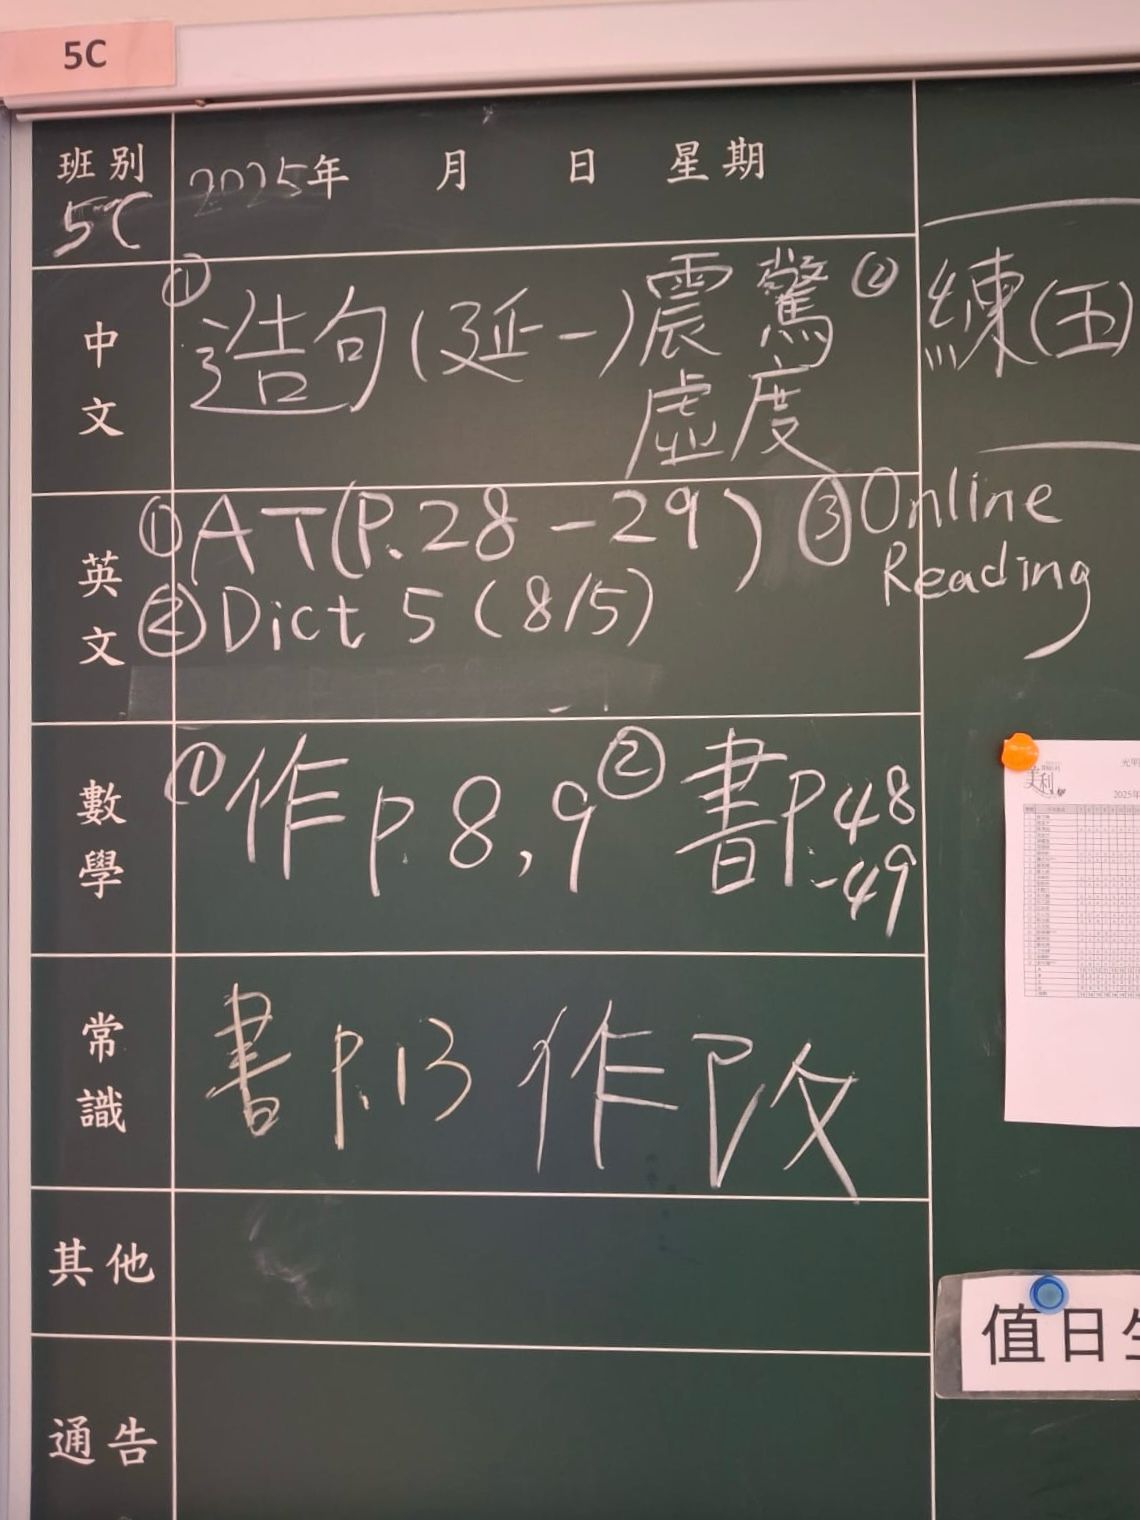 5C
班別
5C
2025年 月 日 星期
中文
① 造句(延一)震驚 ② 練(五)
虛度
英文
① AT(P.28-29) ③ Online
Reading
② Dict 5 (8/5)
數學
① 作 P. 8, 9 ② 書 P. 48
-49
常識
書 P.13 作 改
其他
通告
美利
2025年
值日生